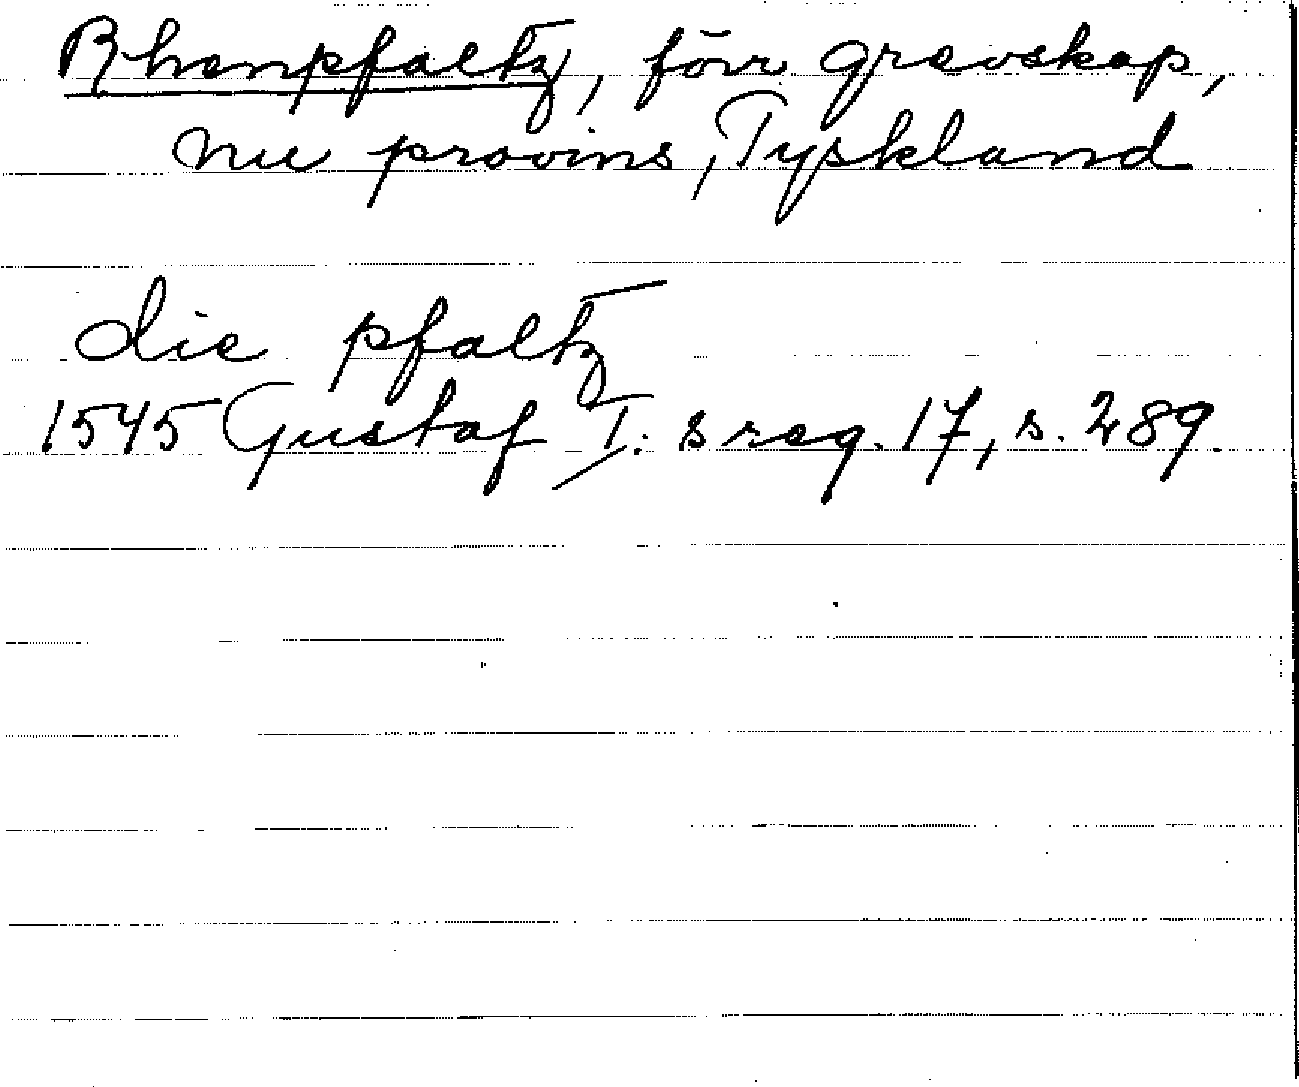 Rhenpfaltz, förr grevskap,
nu provins, Tyskland
die pfaltz
1545 Gustaf I:s reg. 17, s. 289.